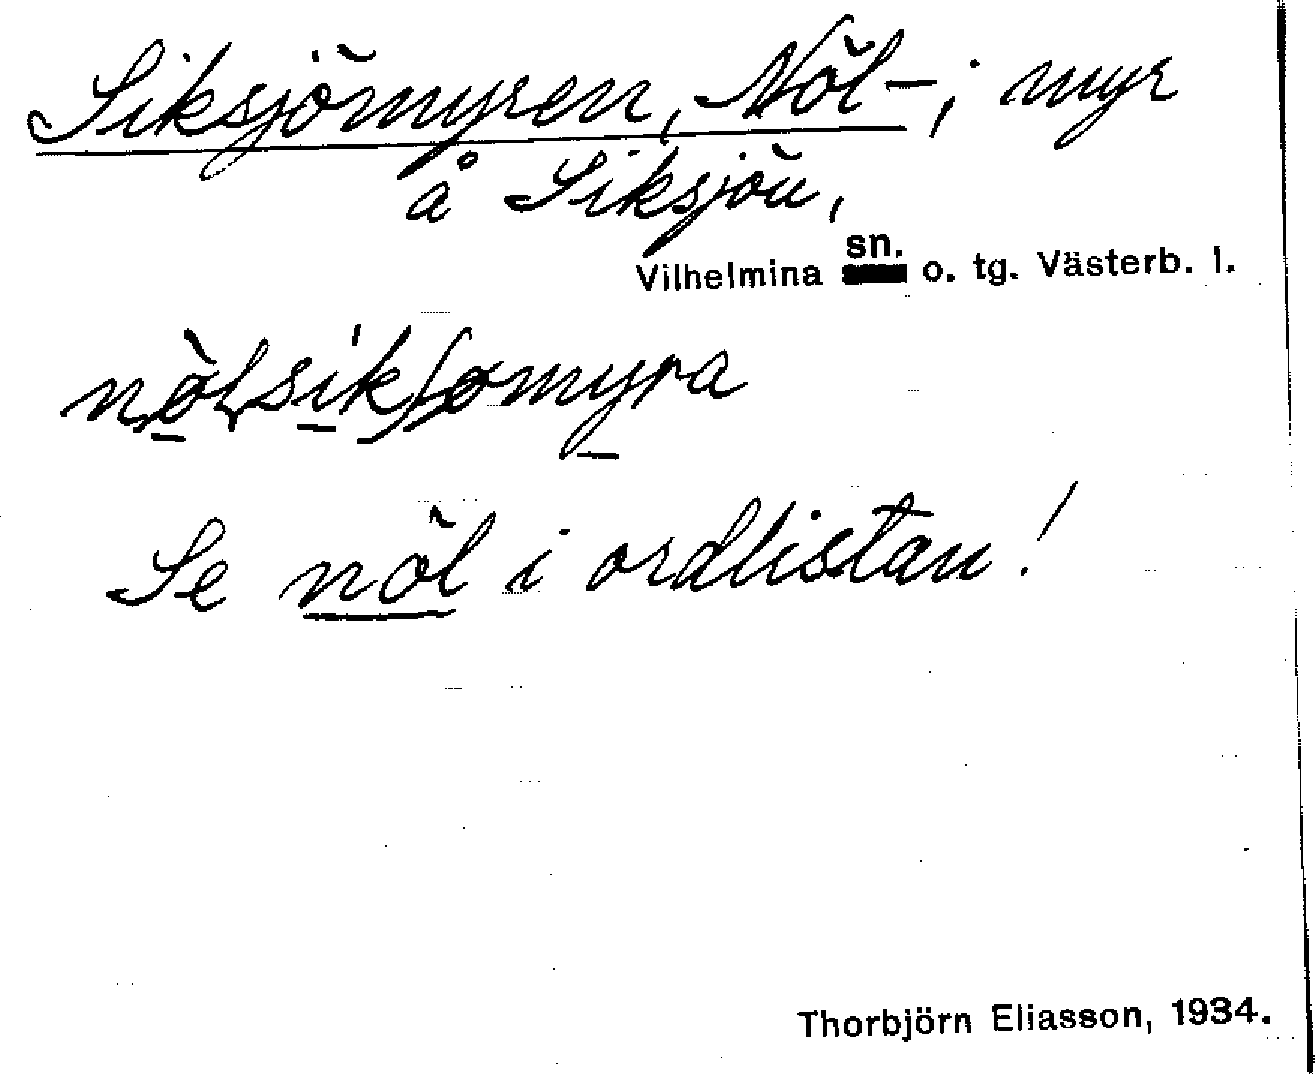 Siksjömyren, Nöl-; myr
å Siksjön,
sn.
Vilhelmina o. tg. Västerb. l.
Se nöl i ordlistan!
Thorbjörn Eliasson, 1934.